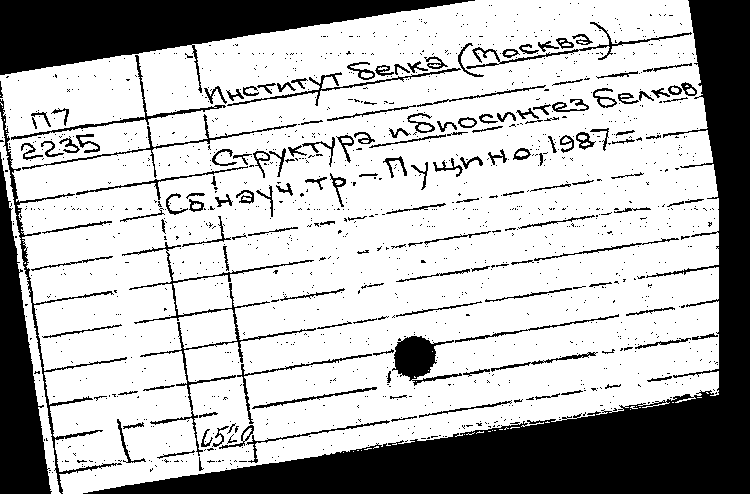 Институт белка (Москва)
П7
2235
Структура и биосинтез белков:
Сб. науч. тр. – Пущино, 1987 –